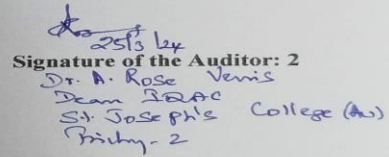 25/3/24
Signature of the Auditor: 2
Dr. A. Rose Venis
Dean IQAC
St. Joseph's College (Au)
Trichy - 2